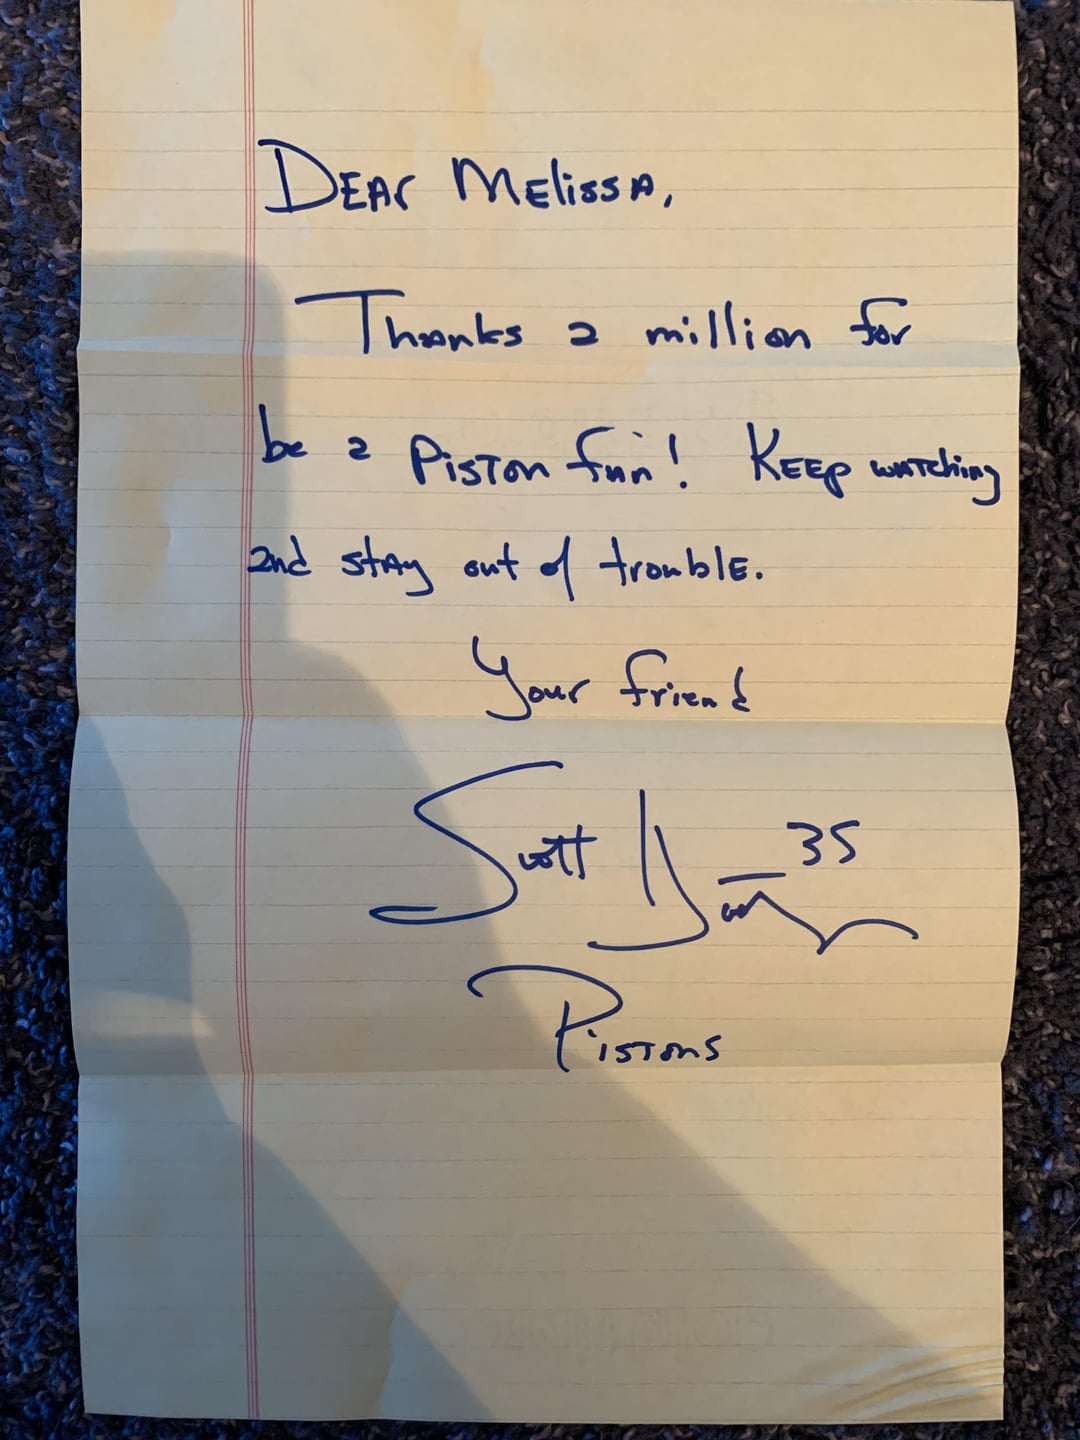 Dear Melissa,
Thanks a million for
be a Piston fan! Keep watching
and stay out of trouble.
Your friend
Scott 35
Pistons